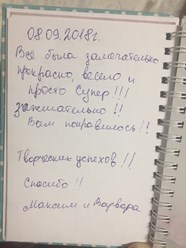 08.09.2018г.
Всё было замечательно
прекрасно, весело и
просто Супер!!!
Зажигательно!!
Вам понравилось!!
Творческих успехов!!
Спасибо!!
Максим и Варвара